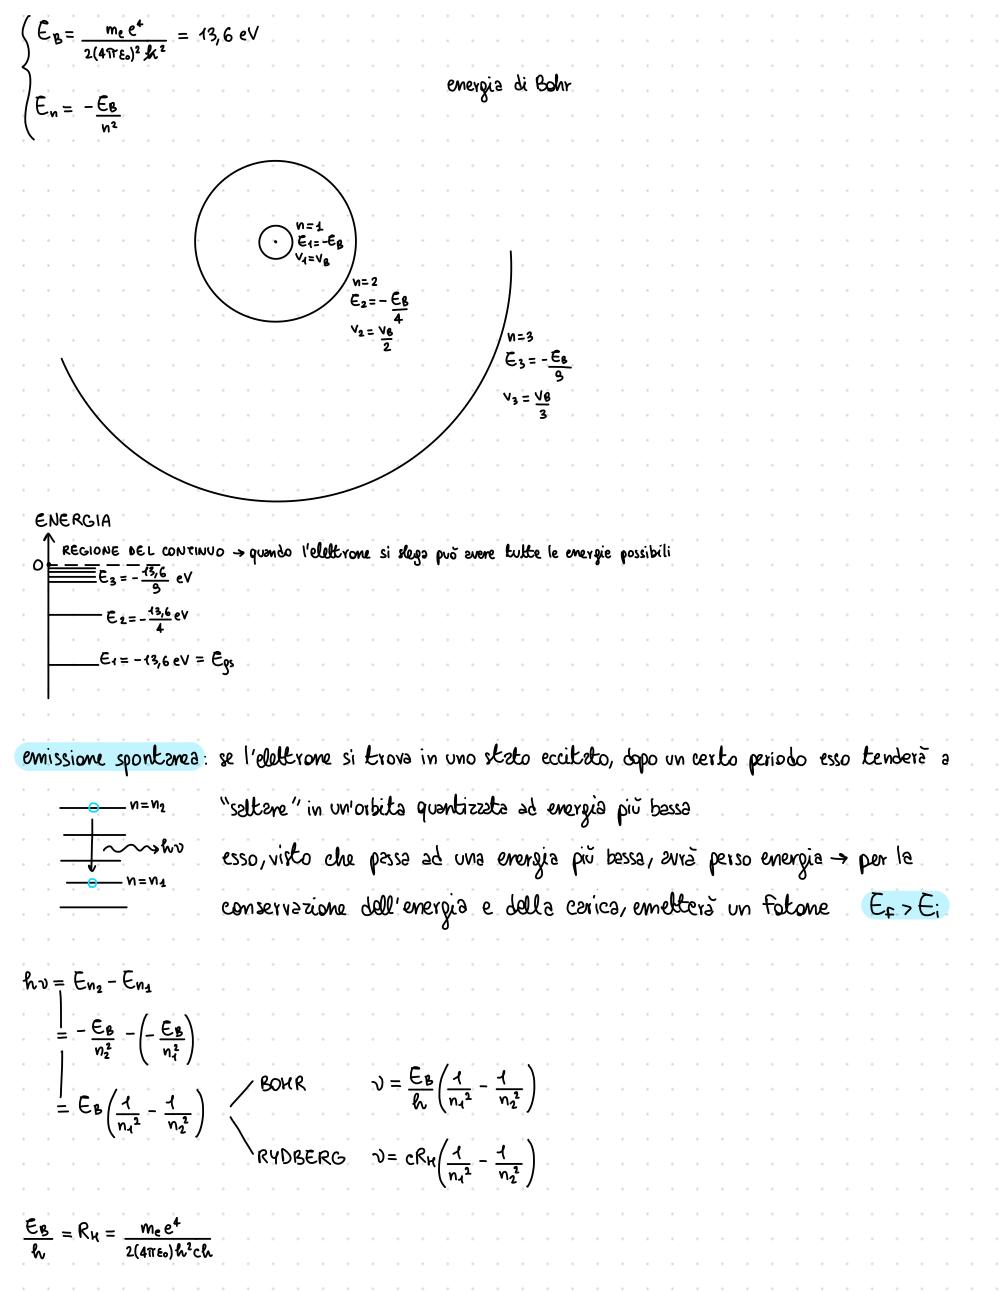 E_B = m_e e⁴ / 2(4πε₀)² ħ² = 13,6 eV
energia di Bohr
E_n = - E_B / n²
n=1
E₁=-E_B
v₁=v_B
n=2
E₂=- E_B / 4
v₂ = v_B / 2
n=3
E₃ = - E_B / 9
v₃ = v_B / 3
ENERGIA
REGIONE DEL CONTINUO → quando l'elettrone si slega può avere tutte le energie possibili
0
E₃ = - 13,6 / 9 eV
E₂ = - 13,6 / 4 eV
E₁ = -13,6 eV = E_gs
emissione spontanea: se l'elettrone si trova in uno stato eccitato, dopo un certo periodo esso tenderà a
n=n₂ "saltare" in un'orbita quantizzata ad energia più bassa
hν
esso, visto che passa ad una energia più bassa, avrà perso energia → per la
n=n₁
conservazione dell'energia e della carica, emetterà un fotone E_f > E_i
hν = E_n₂ - E_n₁
= - E_B / n₂² - (- E_B / n₁²)
= E_B (1 / n₁² - 1 / n₂²)
BOHR ν = E_B / h (1 / n₁² - 1 / n₂²)
RYDBERG ν = cR_H (1 / n₁² - 1 / n₂²)
E_B / h = R_H = m_e e⁴ / 2(4πε₀)ħ²ch